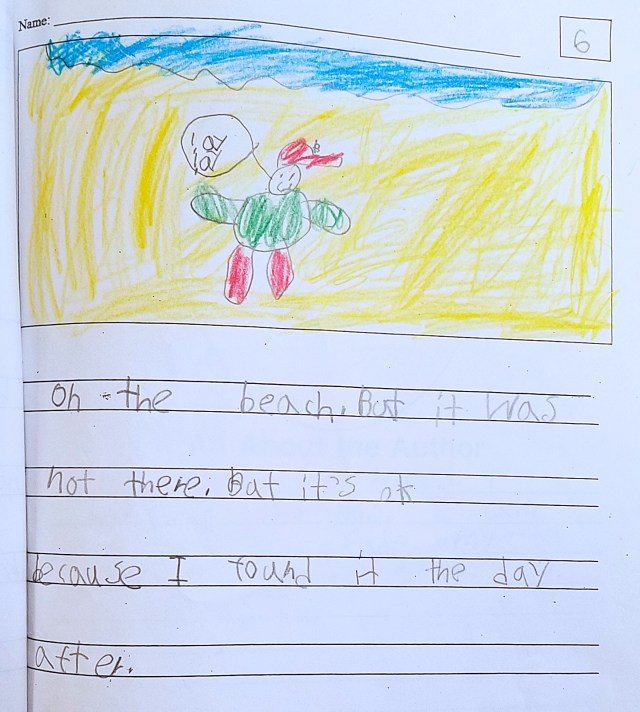 Name:
6
On the beach. But it was
not there. But it's ok
because I found it the day
after.